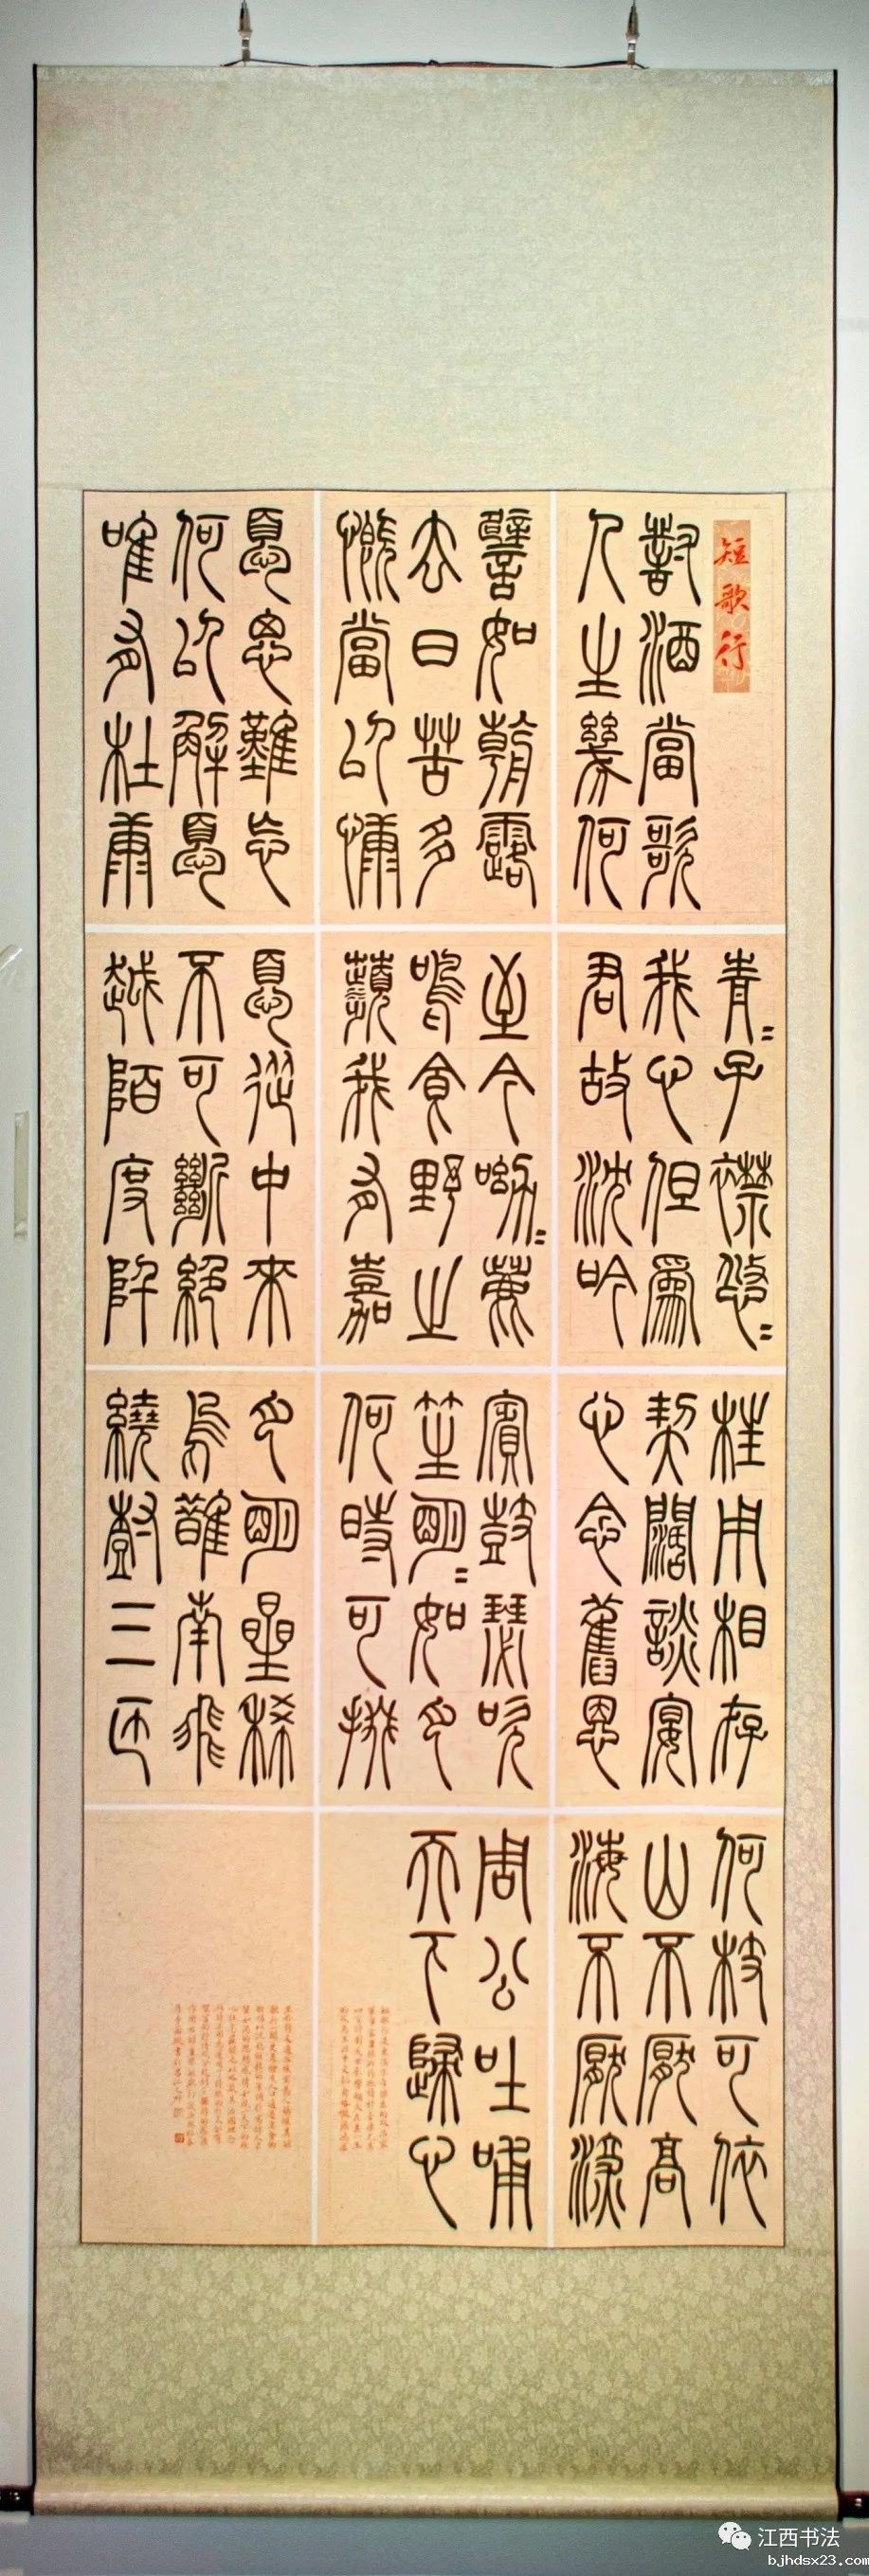 短歌行
對酒當歌
人生幾何
譬如朝露
去日苦多
慨當以慷
憂思難忘
何以解憂
唯有杜康
青〻子襟悠〻
我心但爲
君故沈吟
至今呦〻鹿
鳴食野之
蘋我有嘉
憂從中來
不可斷絕
越陌度阡
枉用相存
契闊談宴
心念舊恩
賓鼓瑟吹
笙明〻如月
何時可掇
月明星稀
烏鵲南飛
繞樹三匝
何枝可依
山不厭高
海不厭深
周公吐哺
天下歸心
江西书法
bjhdsx23.com